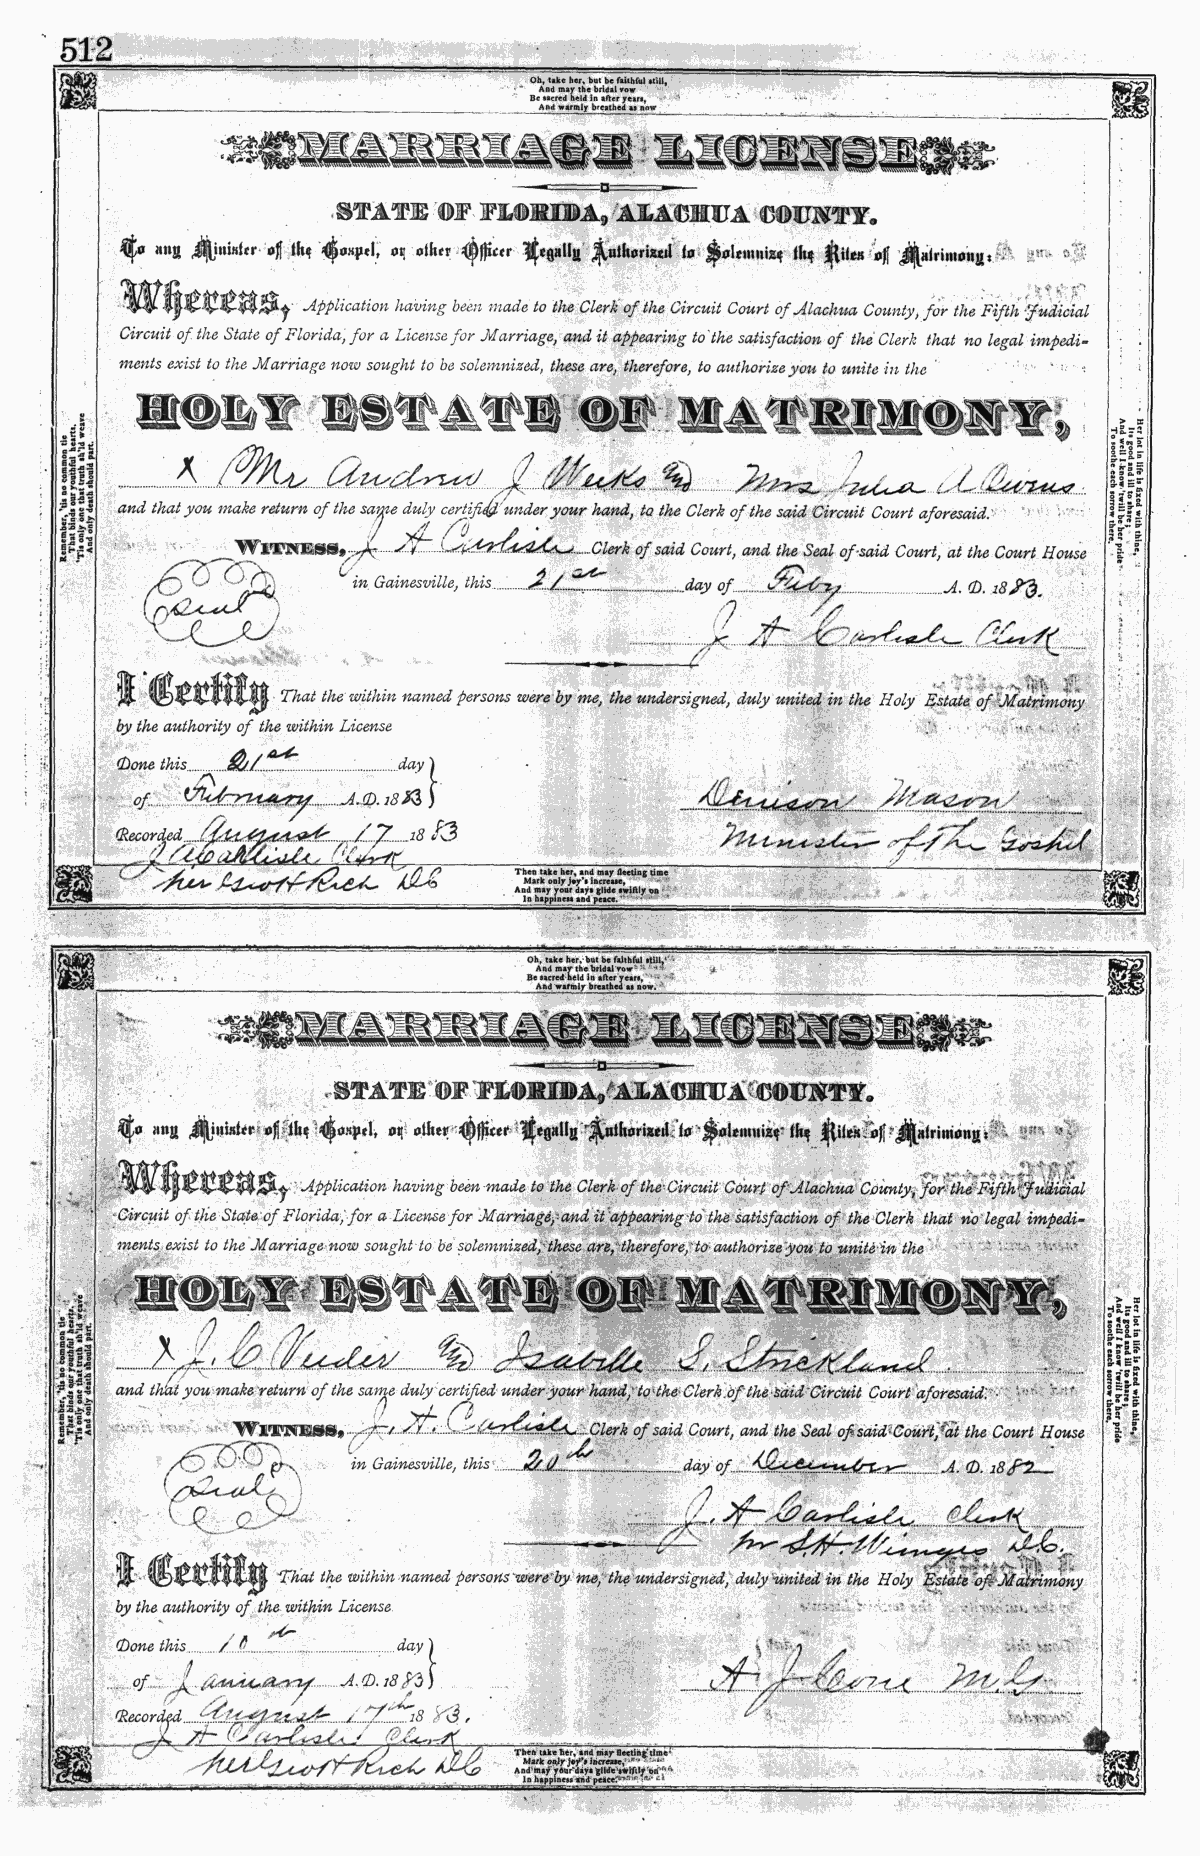 512
Oh, take her, but be faithful still,
And may the bridal vow
Be sacred held in after years,
And warmly breathed as now
MARRIAGE LICENSE
STATE OF FLORIDA, ALACHUA COUNTY.
To any Minister of the Gospel, or other Officer Legally Authorized to Solemnize the Rites of Matrimony:
Whereas, Application having been made to the Clerk of the Circuit Court of Alachua County, for the Fifth Judicial
Circuit of the State of Florida, for a License for Marriage, and it appearing to the satisfaction of the Clerk that no legal impedi-
ments exist to the Marriage now sought to be solemnized, these are, therefore, to authorize you to unite in the
HOLY ESTATE OF MATRIMONY,
x Mr Andrew J Weeks and Mrs Julia A Owens
and that you make return of the same duly certified under your hand, to the Clerk of the said Circuit Court aforesaid.
WITNESS, J A Carlisle Clerk of said Court, and the Seal of said Court, at the Court House
in Gainesville, this 21st day of Feby A. D. 1883.
Seal
J A Carlisle Clerk
I Certify That the within named persons were by me, the undersigned, duly united in the Holy Estate of Matrimony
by the authority of the within License
Done this 21st day
of February A.D. 1883
Denison Mason
Recorded August 17 1883
Minister of the Gospel
J A Carlisle Clerk
per Geo H Rich DC
Then take her, and may fleeting time
Mark only joy's increase,
And may your days glide swiftly on
In happiness and peace.
Remember, 'tis no common tie
That binds our youthful hearts,
'Tis only one that truth sh'ld weave
And only death should part.
Her lot in life is fixed with thine,
Its good and ill to share;
And well I know 'twill be her pride
To soothe each sorrow there.
Oh, take her, but be faithful still,
And may the bridal vow
Be sacred held in after years,
And warmly breathed as now.
MARRIAGE LICENSE
STATE OF FLORIDA, ALACHUA COUNTY.
To any Minister of the Gospel, or other Officer Legally Authorized to Solemnize the Rites of Matrimony:
Whereas, Application having been made to the Clerk of the Circuit Court of Alachua County, for the Fifth Judicial
Circuit of the State of Florida, for a License for Marriage, and it appearing to the satisfaction of the Clerk that no legal impedi-
ments exist to the Marriage now sought to be solemnized, these are, therefore, to authorize you to unite in the
HOLY ESTATE OF MATRIMONY,
x J. C. and Isabelle S. Strickland
and that you make return of the same duly certified under your hand, to the Clerk of the said Circuit Court aforesaid.
WITNESS, J. A. Carlisle Clerk of said Court, and the Seal of said Court, at the Court House
in Gainesville, this 20th day of December A. D. 1882
Seal
J. A Carlisle Clerk
pr S.H. D.C.
I Certify That the within named persons were by me, the undersigned, duly united in the Holy Estate of Matrimony
by the authority of the within License
Done this 10th day
of January A.D. 1883
A J Cone M.G.
Recorded August 17th 1883.
J A Carlisle Clerk
per Geo H Rich DC
Then take her, and may fleeting time
Mark only joy's increase,
And may your days glide swiftly on
In happiness and peace.
Remember, 'tis no common tie
That binds our youthful hearts,
'Tis only one that truth sh'ld weave
And only death should part.
Her lot in life is fixed with thine,
Its good and ill to share;
And well I know 'twill be her pride
To soothe each sorrow there.